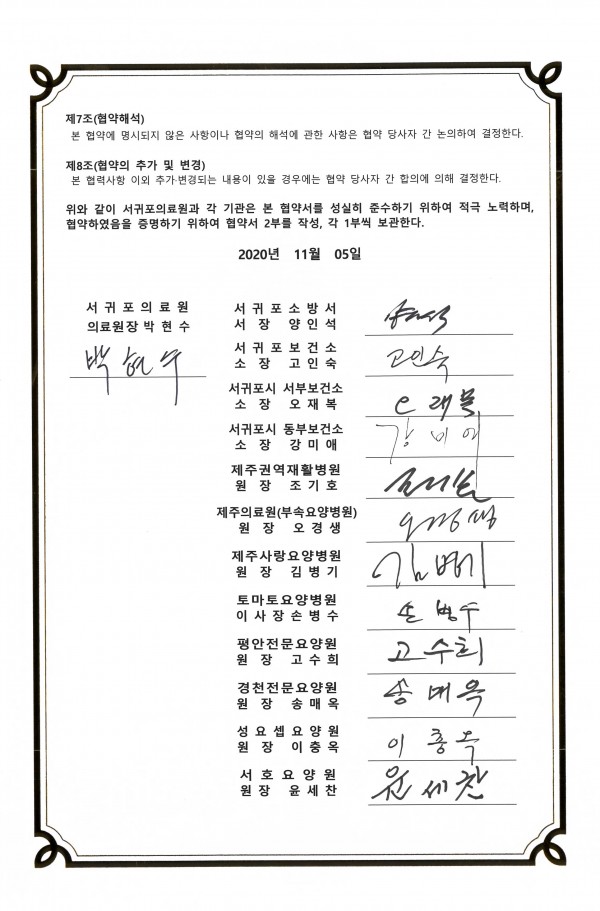 제7조(협약해석)
본 협약에 명시되지 않은 사항이나 협약의 해석에 관한 사항은 협약 당사자 간 논의하여 결정한다.
제8조(협약의 추가 및 변경)
본 협력사항 이외 추가·변경되는 내용이 있을 경우에는 협약 당사자 간 합의에 의해 결정한다.
위와 같이 서귀포의료원과 각 기관은 본 협약서를 성실히 준수하기 위하여 적극 노력하며,
협약하였음을 증명하기 위하여 협약서 2부를 작성, 각 1부씩 보관한다.
2020년 11월 05일
서 귀 포 의 료 원
의료원장 박 현 수
백 현 수
서 귀 포 소 방 서
서 장 양 인 석
양인석
서 귀 포 보 건 소
소 장 고 인 숙
고인숙
서귀포시 서부보건소
소 장 오 재 복
서귀포시 동부보건소
소 장 강 미 애
강 미 애
제주권역재활병원
원 장 조 기 호
제주의료원(부속요양병원)
원 장 오 경 생
오경생
제주사랑요양병원
원 장 김 병 기
김병기
토마토요양병원
이 사 장 손 병 수
손 병수
평안전문요양원
원 장 고 수 희
고 수희
경천전문요양원
원 장 송 매 옥
송 매 옥
성 요 셉 요 양 원
원 장 이 충 옥
이 충 옥
서 호 요 양 원
원 장 윤 세 찬
윤 세 찬